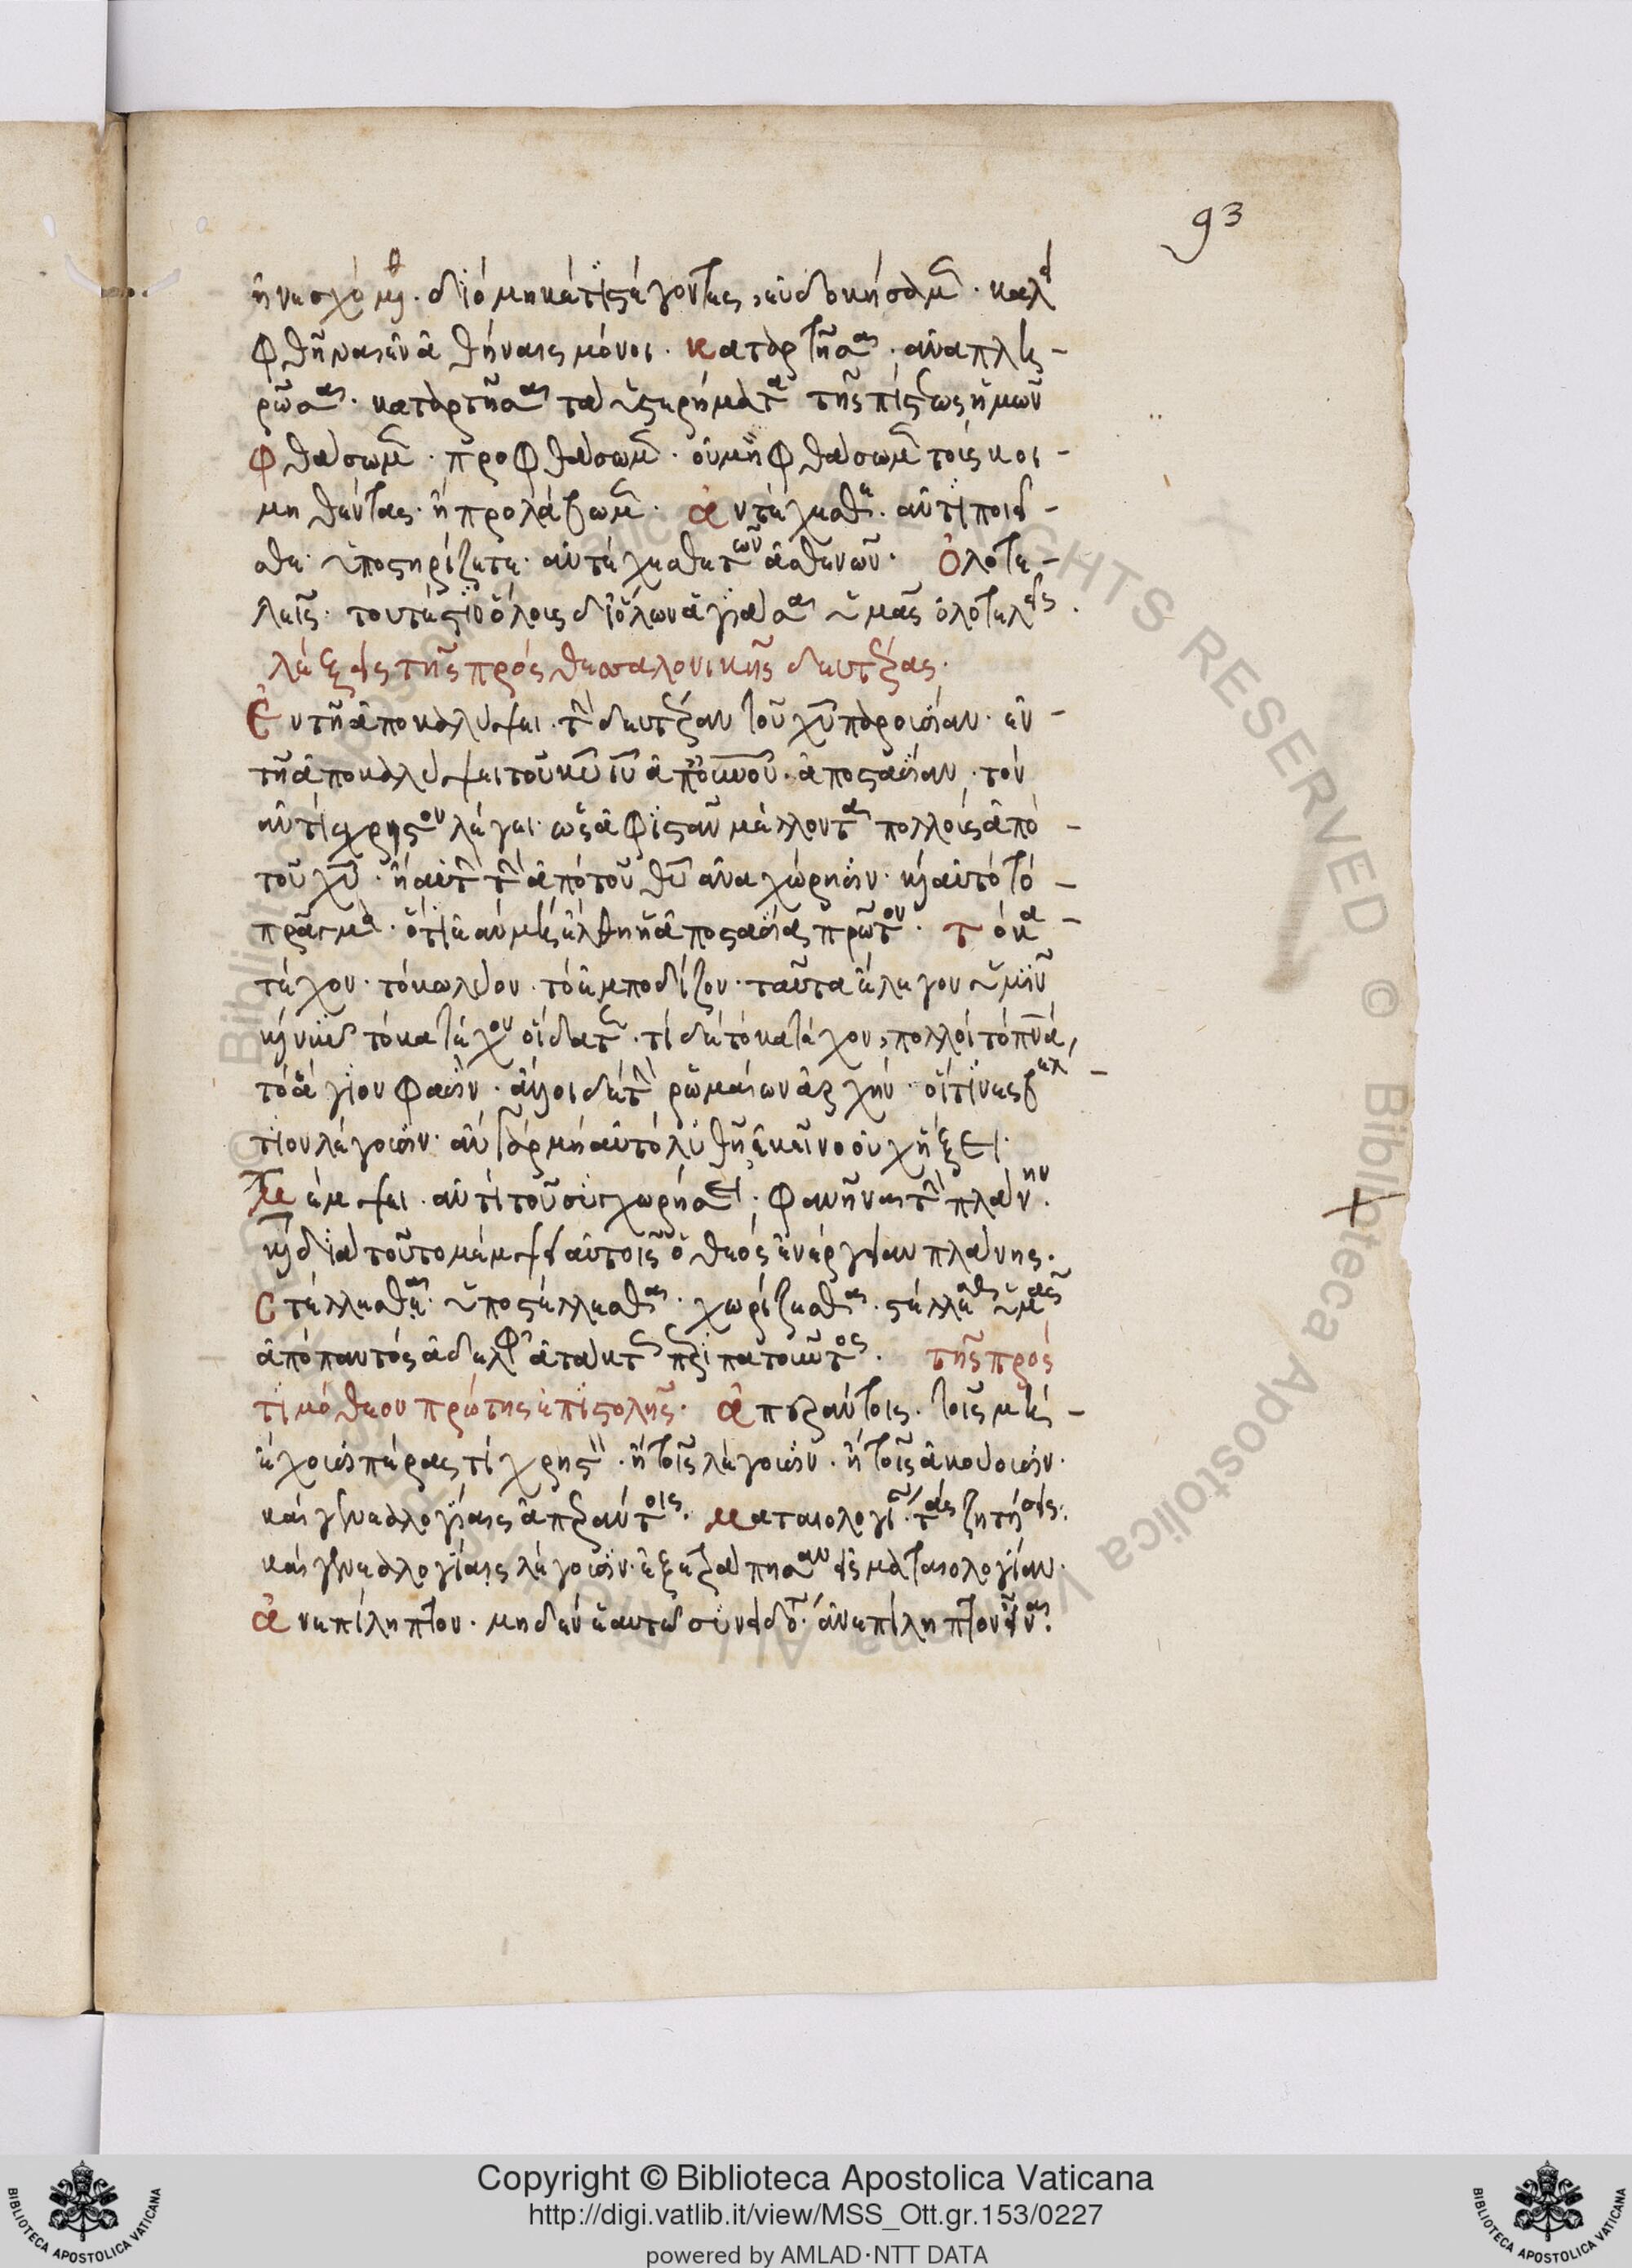 93
ἠνεσχόμεθα. διὸ μηκέτι στέγοντες, εὐδοκήσαμεν. καλει
φθῆναι ἐν ἀθήναις μόνοι. καταρτῆσαι. ἀναπλη-
ρῶσαι. καταρτῆσαι τὰ ὑστερήματα τῆς πίστεως ἡμῶν
φθάσωμεν. προφθάσωμεν. οὐ μὴ φθάσωμεν τοὺς κοι-
μηθέντας. ἢ προλάβωμεν. ἀντέχεσθε. ἀντιποιεῖ-
σθε. ὑποστηρίζετε. ἀντέχεσθε τῶν ἀσθενῶν. Ὁλοτε-
λεῖς. τουτέστιν ὅλους δι' ὅλων ἁγιάσαι ὑμᾶς ὁλοτελεῖς.
λέξεις τῆς πρὸς θεσσαλονικῆς δευτέρας.
Ἐν τῇ ἀποκαλύψει. τὴν δευτέραν τοῦ χυ παρουσίαν. ἐν
τῇ ἀποκαλύψει τοῦ κυ ιυ ἀπ' οὐνου. ἀποστασίαν. τὸν
ἀντίχρηστον λέγει. ὡς ἀφιστᾶν μέλλοντα πολλοὺς ἀπὸ
τοῦ χυ. ἢ αὐτὴν τὴν ἀπὸ τοῦ θυ ἀναχώρησιν. καὶ αὐτὸ τὸ
πρᾶγμα. ὅτι ἐὰν μὴ ἔλθῃ ἡ ἀποστασία πρῶτον. τὸ κα-
τέχον. τὸ κωλύον. τὸ ἐμποδίζον. ταῦτα ἔλεγον ὑμῖν
καὶ νῦν τὸ κατέχον οἴδατε. τί δὲ τὸ κατέχον, πολλοὶ τὸ πνα,
τὸ ἅγιον φασὶν. ἄλλοι δὲ τὴν ῥωμαίων ἀρχήν. οἵτινες βελ-
τιον λέγουσιν. ἂν γὰρ μὴ αὐτὸ λυθῇ ἐκεῖνο οὐχ ἥξει.
Πέμψει. ἀντὶ τοῦ συγχωρήσει. φανῆναι τὴν πλάνην.
καὶ διὰ τοῦτο πέμψει αὐτοῖς ὁ θεὸς ἐνέργειαν πλάνης.
Στέλλεσθαι. ὑποστέλλεσθαι. χωρίζεσθαι. στέλλεσθαι ὑμᾶς
ἀπὸ παντὸς ἀδελφοῦ ἀτάκτως περιπατοῦντος. τῆς πρὸς
τιμόθεον πρώτης ἐπιστολῆς. ἀπεράντοις. τοῖς μὴ
ἔχουσι πέρας τί χρηστὸν. ἢ τοῖς λέγουσιν. ἢ τοῖς ἀκούουσιν.
καὶ γενεαλογίαις ἀπεράντοις. ματαιολογίαν. τὰς ζητήσεις.
καὶ γενεαλογίαις λέγουσιν. ἐξετράπησαν εἰς ματαιολογίαν.
ἀνεπίληπτον. μηδὲν ἑαυτῷ συνειδότα. ἀνεπίληπτον εἶναι.
Copyright © Biblioteca Apostolica Vaticana
http://digi.vatlib.it/view/MSS_Ott.gr.153/0227
powered by AMLAD·NTT DATA